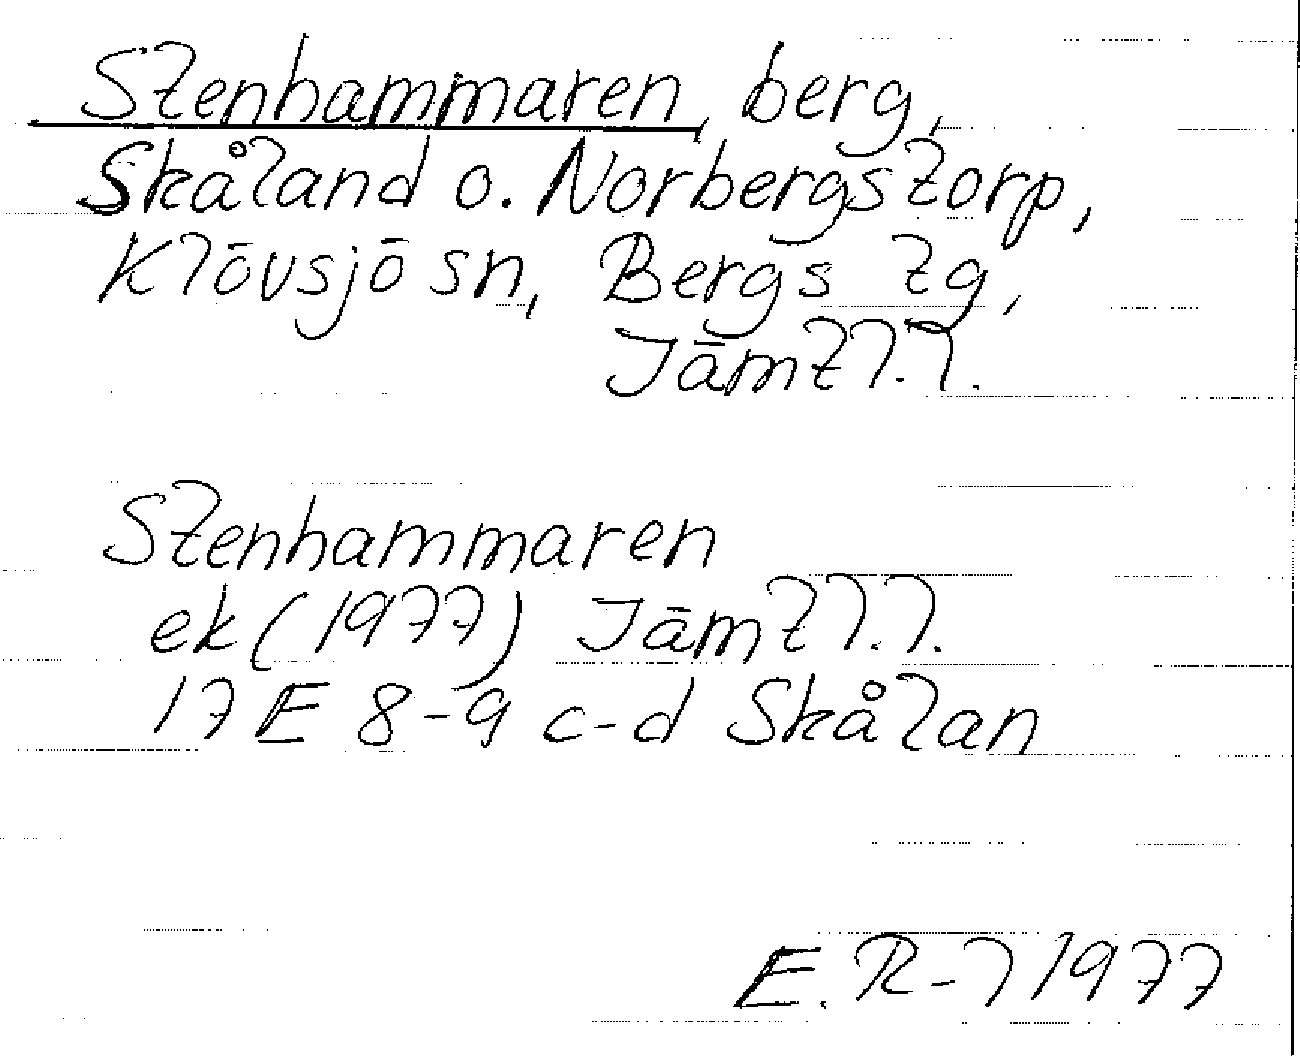 Stenhammaren, berg,
Skåland o. Norbergstorp,
Klövsjö sn, Bergs tg,
Jämtl.l.
Stenhammaren
ek (1977) Jämtl.l.
17 E 8-9 c-d Skålan
E. R-l 1977